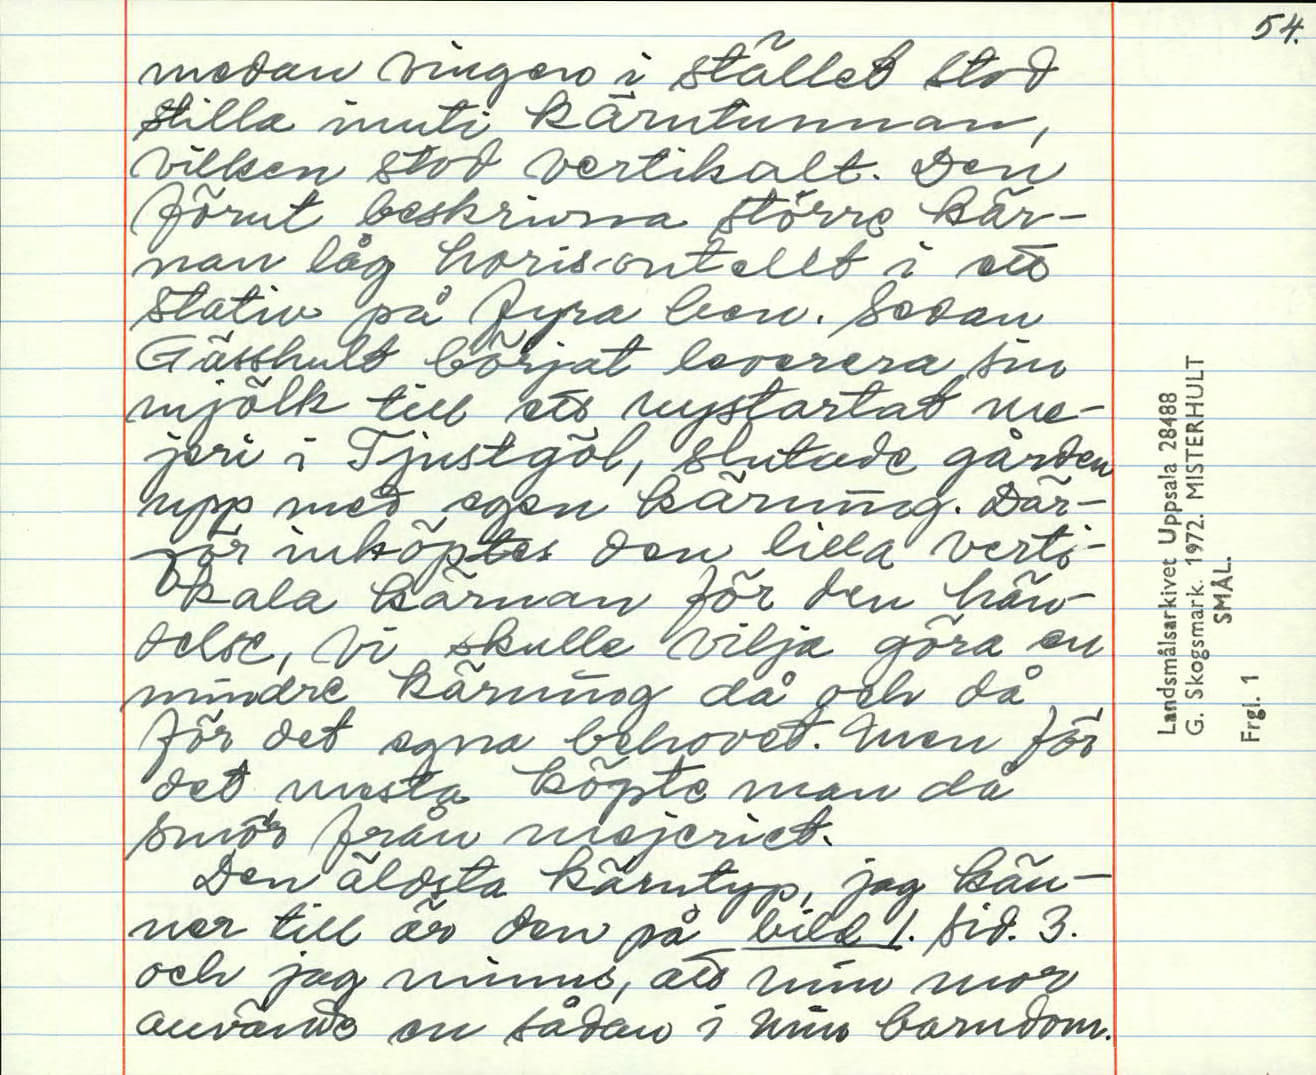 54.
medan vingen i stället stod
stilla inuti kärntunnan,
vilken stod vertikalt. Den
förut beskrivna större kär-
nan låg horisontellt i ett
stativ på fyra ben. Sedan
Gässhult börjat leverera sin
mjölk till ett nystartat me-
jeri i Tjustgöl, slutade gården
upp med egen kärning. Där-
för inköptes den lilla verti-
kala kärnan för den hän-
delse, vi skulle vilja göra en
mindre kärning då och då
för det egna behovet. Men för
det mesta köpte man då
smör från mejeriet.
Den äldsta kärntyp, jag kän-
ner till är den på bild 1. sid. 3.
och jag minns, att min mor
använde en sådan i min barndom.
Landsmålsarkivet Uppsala 28488
G. Skogsmark. 1972. MISTERHULT
SMÅL.
Frgl. 1